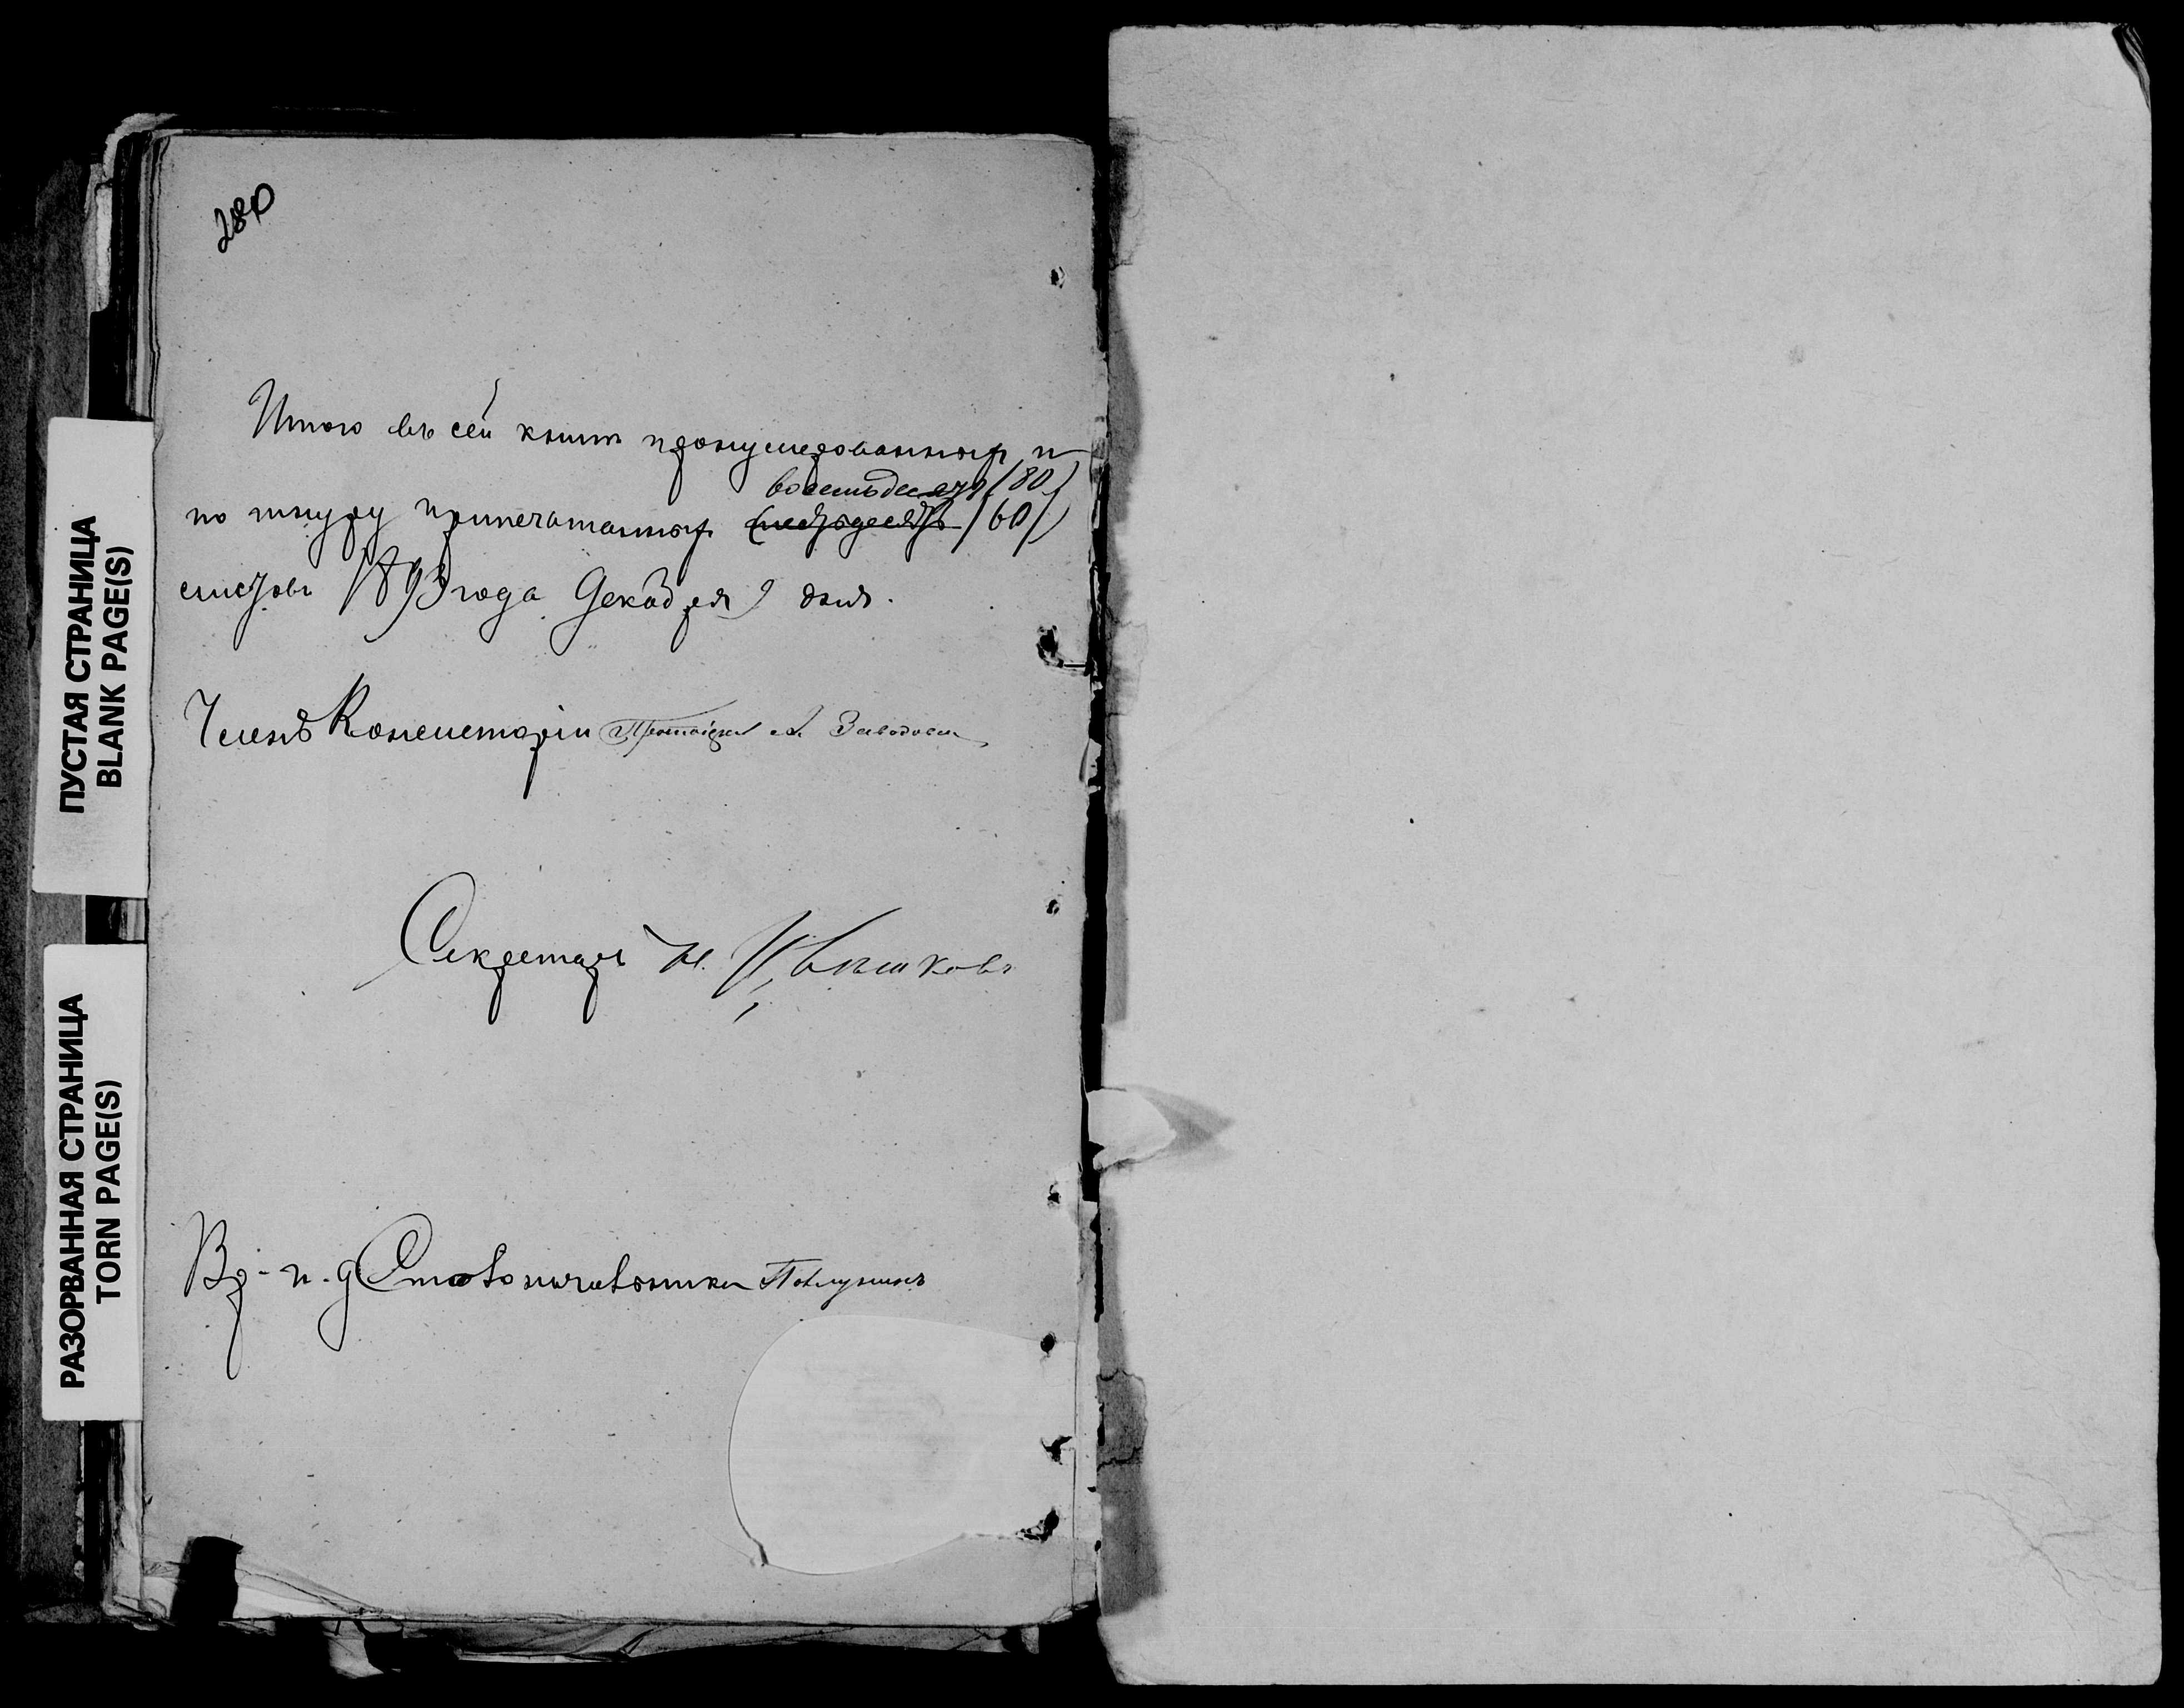 280
Итого въ сей книгѣ пронумерованныхъ и
восемьдесятъ (80)
по шнуру припечатанныхъ шестьдесятъ (60)
листовъ 1893 года Декабря 9 дня.
Членъ Консисторіи Протоіерей А.
Секретарь Н.
Вр. и. д Столоначальника
ПУСТАЯ СТРАНИЦА
BLANK PAGE(S)
РАЗОРВАННАЯ СТРАНИЦА
TORN PAGE(S)